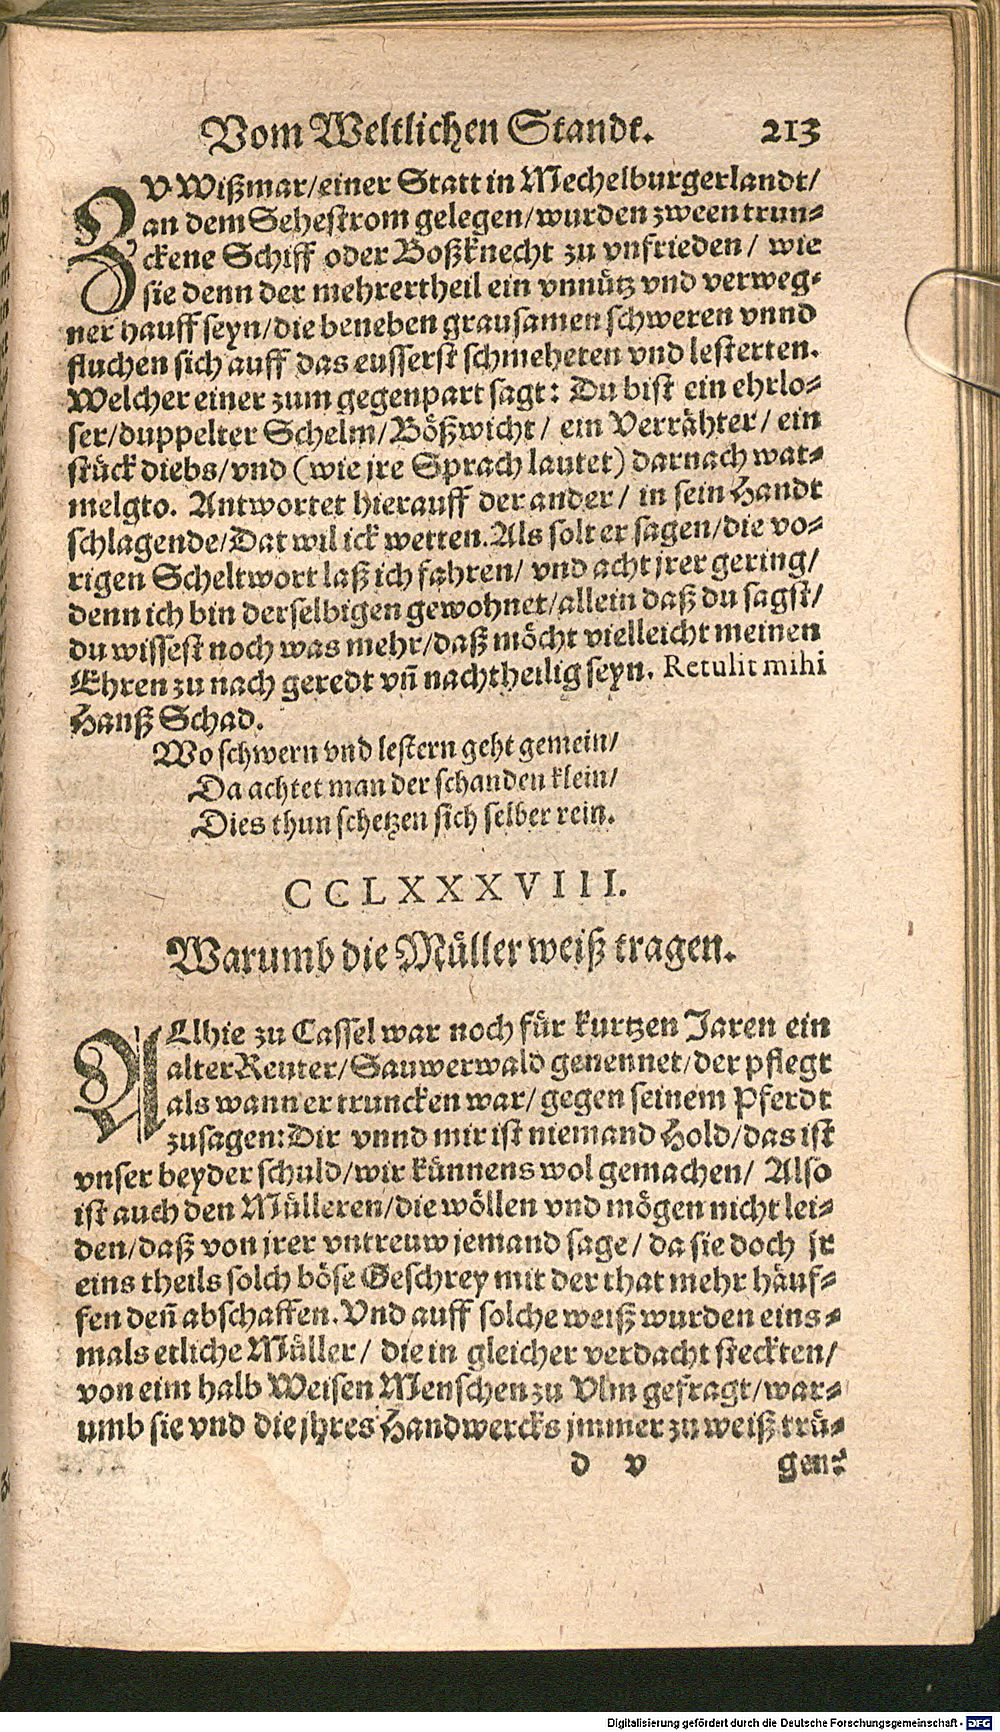 Vom Weltlichen Standt. 213
ZV Wißmar/einer Statt in Mechelburgerlandt/
an dem Sehestrom gelegen/wurden zween trun-
ckene Schiff oder Boßknecht zu vnfrieden/ wie
sie denn der mehrertheil ein vnnütz vnd verweg-
ner hauff seyn/die beneben grausamen schweren vnnd
fluchen sich auff das eusserst schmeheten vnd lesterten.
Welcher einer zum gegenpart sagt: Du bist ein ehrlo-
ser/duppelter Schelm/Bößwicht/ ein Verrähter/ ein
stück diebs/vnd (wie jre Sprach lautet) darnach wat-
melgto. Antwortet hierauff der ander/ in sein Handt
schlagende/Dat wil ick wetten. Als solt er sagen/die vo-
rigen Scheltwort laß ich fahren/ vnd acht jrer gering/
denn ich bin derselbigen gewohnet/allein daß du sagst/
du wissest noch was mehr/daß möcht vielleicht meinen
Ehren zu nach geredt vñ nachtheilig seyn. Retulit mihi
Hanß Schad.
Wo schwern vnd lestern geht gemein/
Da achtet man der schanden klein/
Dies thun schetzen sich selber rein.
CCLXXXVIII.
Warumb die Müller weiß tragen.
ALlhie zu Cassel war noch für kurtzen Jaren ein
alter Reuter/Sauwerwald genennet/der pflegt
als wann er truncken war/ gegen seinem Pferdt
zusagen: Dir vnnd mir ist niemand Hold/das ist
vnser beyder schuld/wir künnens wol gemachen/ Also
ist auch den Mülleren/die wöllen vnd mögen nicht lei-
den/daß von jrer vntreuw jemand sage/ da sie doch jr
eins theils solch böse Geschrey mit der that mehr häuf-
fen deñ abschaffen. Vnd auff solche weiß wurden eins-
mals etliche Müller/ die in gleicher verdacht steckten/
von eim halb Weisen Menschen zu Vlm gefragt/war-
umb sie vnd die jhres Handwercks jmmer zu weiß trü-
d v gen?
Digitalisierung gefördert durch die Deutsche Forschungsgemeinschaft - DFG